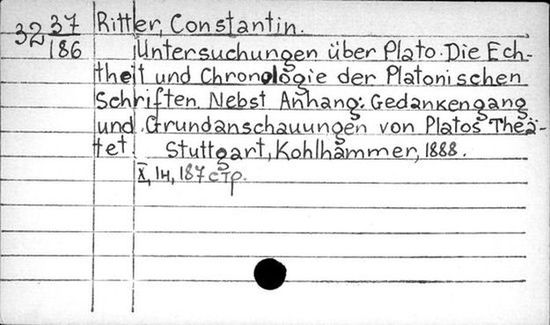 32 37/186
Ritter, Constantin.
Untersuchungen über Plato. Die Ech-
theit und Chronologie der Platonischen
Schriften. Nebst Anhang: Gedankengang
und Grundanschauungen von Platos Theä-
tet. Stuttgart, Kohlhammer, 1888.
X, 1н, 187 стр.